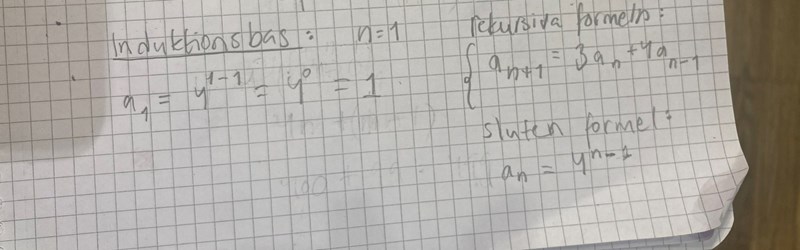 Induktionsbas: n=1
a₁ = 4¹⁻¹ = 4⁰ = 1
rekursiva formeln:
{ aₙ₊₁ = 3aₙ + 4aₙ₋₁
sluten formel:
aₙ = 4ⁿ⁻¹